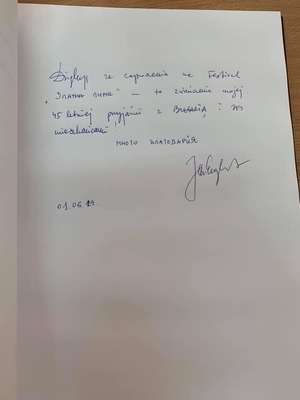 Dziękuję za zaproszenie na Festival
"Златна липа" — to zwieńczenie mojej
45 letniej przyjaźni z Bułgarią i jej
mieszkańcami
МНОГО БЛАГОДАРЯ
01.06.19.